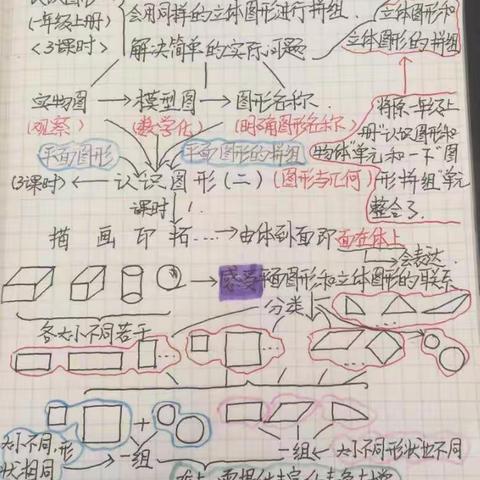 (一年级上册)
<3课时>
会用同样的立体图形进行拼组.
解决简单的实际问题
立体图形和
立体图形的拼组
实物图→模型图→图形名称.
(观察) (数学化) (明确图形名称)
将原一年级上
册"认识图形和
物体"单元和一下"图
形拼组"单元
整合了.
平面图形 平面图形的拼组
(3课时)←认识图形(二)(图形与几何)
课时1
描 画 印 拓……→由体到面即面在体上
会表达.
感受平面图形和立体图形的联系
分类
各大小不同若干
大小不同,形
状相同
一组
一组←大小不同形状也不同